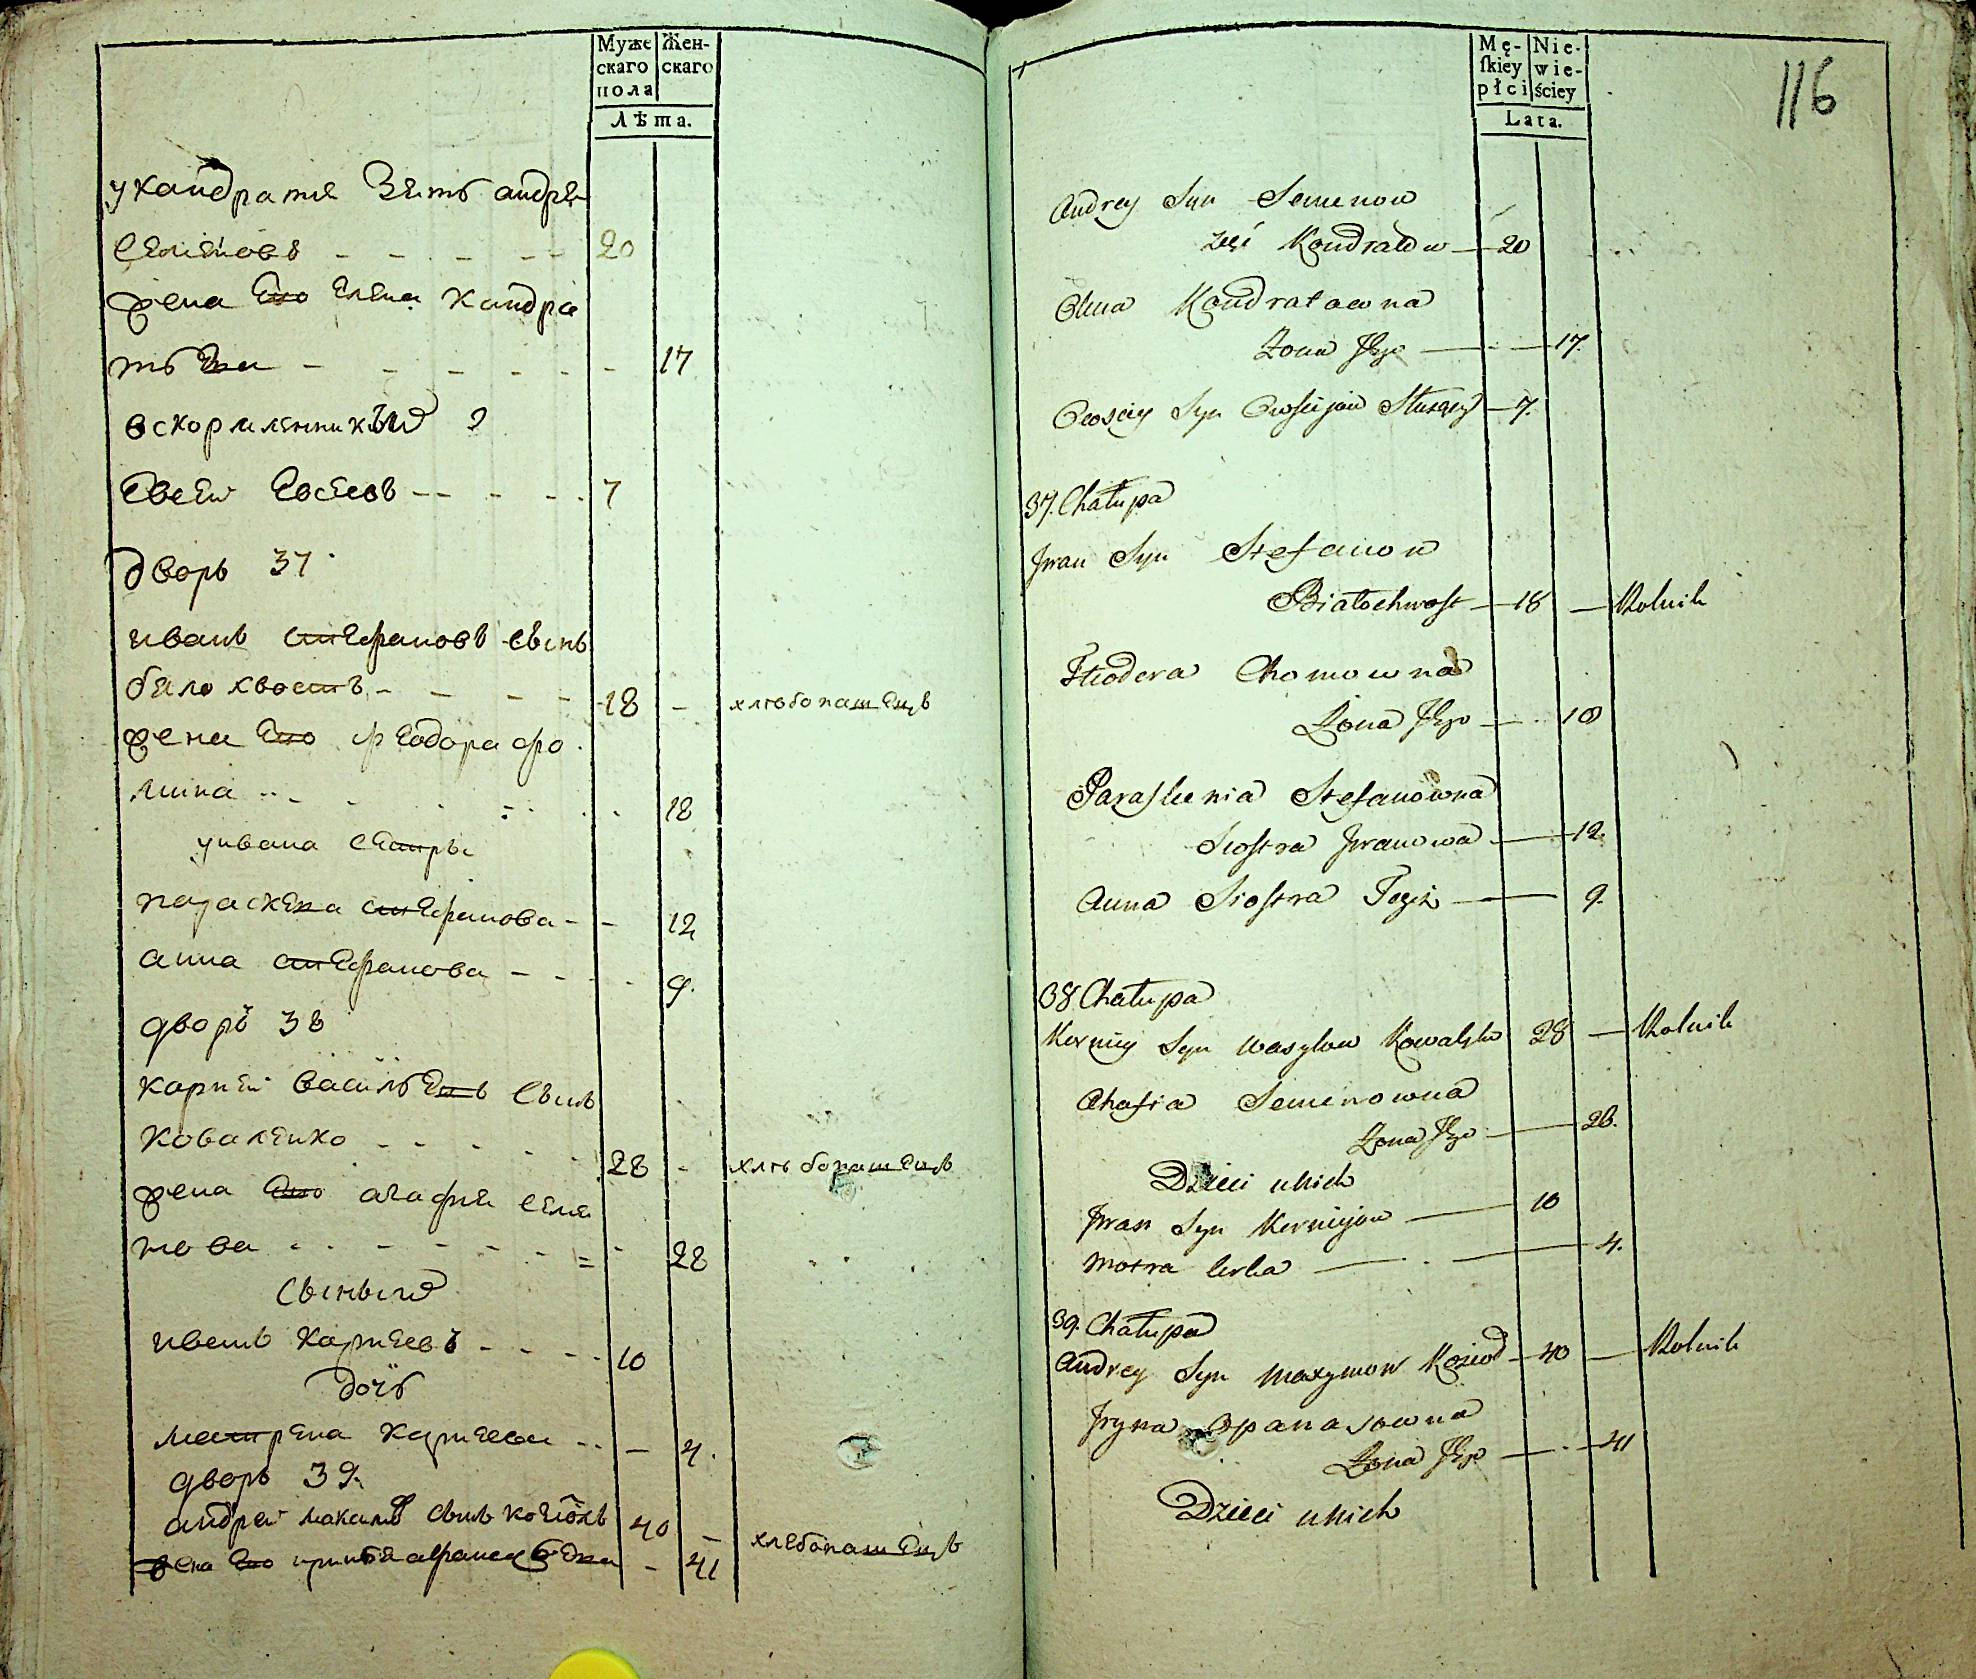 Муже Жен-
скаго скаго
пола
Лѣта.
укандратя Зять андрѣи
Семѣновъ - - - - - 20
жена Ево Елена Кандра
тьева - - - - - - 17
вскормленникъ
Евсеи Евсеевъ - - - - 7
дворъ 37
иванъ стефановъ сынъ
белохвостъ - - - - 18 - хлѣбопашецъ
жена Ево феодора фо
мина - - - - - 18
уивана сестры
параскева стефанова - - 12
анна стефанова - - - 9.
дворъ 38
карпеи васильевъ сынъ
коваленко - - - - - 28 - хлѣбопашецъ
жена Ево агафия семе
нова - - - - - - 28
сыны
иванъ карнеевъ - - - - 10
дочь
матрена карнеева - - — 4.
дворъ 39.
андреи макъсимовъ сынъ 40 — хлебопашецъ
жена Ево - 41
Mę- Nie-
ſkiey wie-
płci ściey
Lata.
116
Andrey Syn Semenow
zięć Kondratow — 20
Olena Kondratowna
Żona Jego — 17.
Owsiey Syn Owsiejow Służący — 7.
37. Chałupa
Jwan Syn Stefanow
Białochwost — 18 — Rolnik
Fteodora Chomowna
Żona Jego — 18
Paraskewia Stefanowna
Siostra Jwanowa — 12.
Anna Siostra Tegoż — 9.
38 Chałupa
Kerniey Syn Wasylow Kowalenko 28 — Rolnik
Ahafia Semenowna
Żona Jego — 28.
Dzieci unich
Jwan Syn Kerniejow — 10
Motra Corka — 4.
39. Chałupa
Andrey Syn Maxymow Kozioł — 40 — Rolnik
Jryna Opanasowna
Żona Jego — 41
Dzieci unich